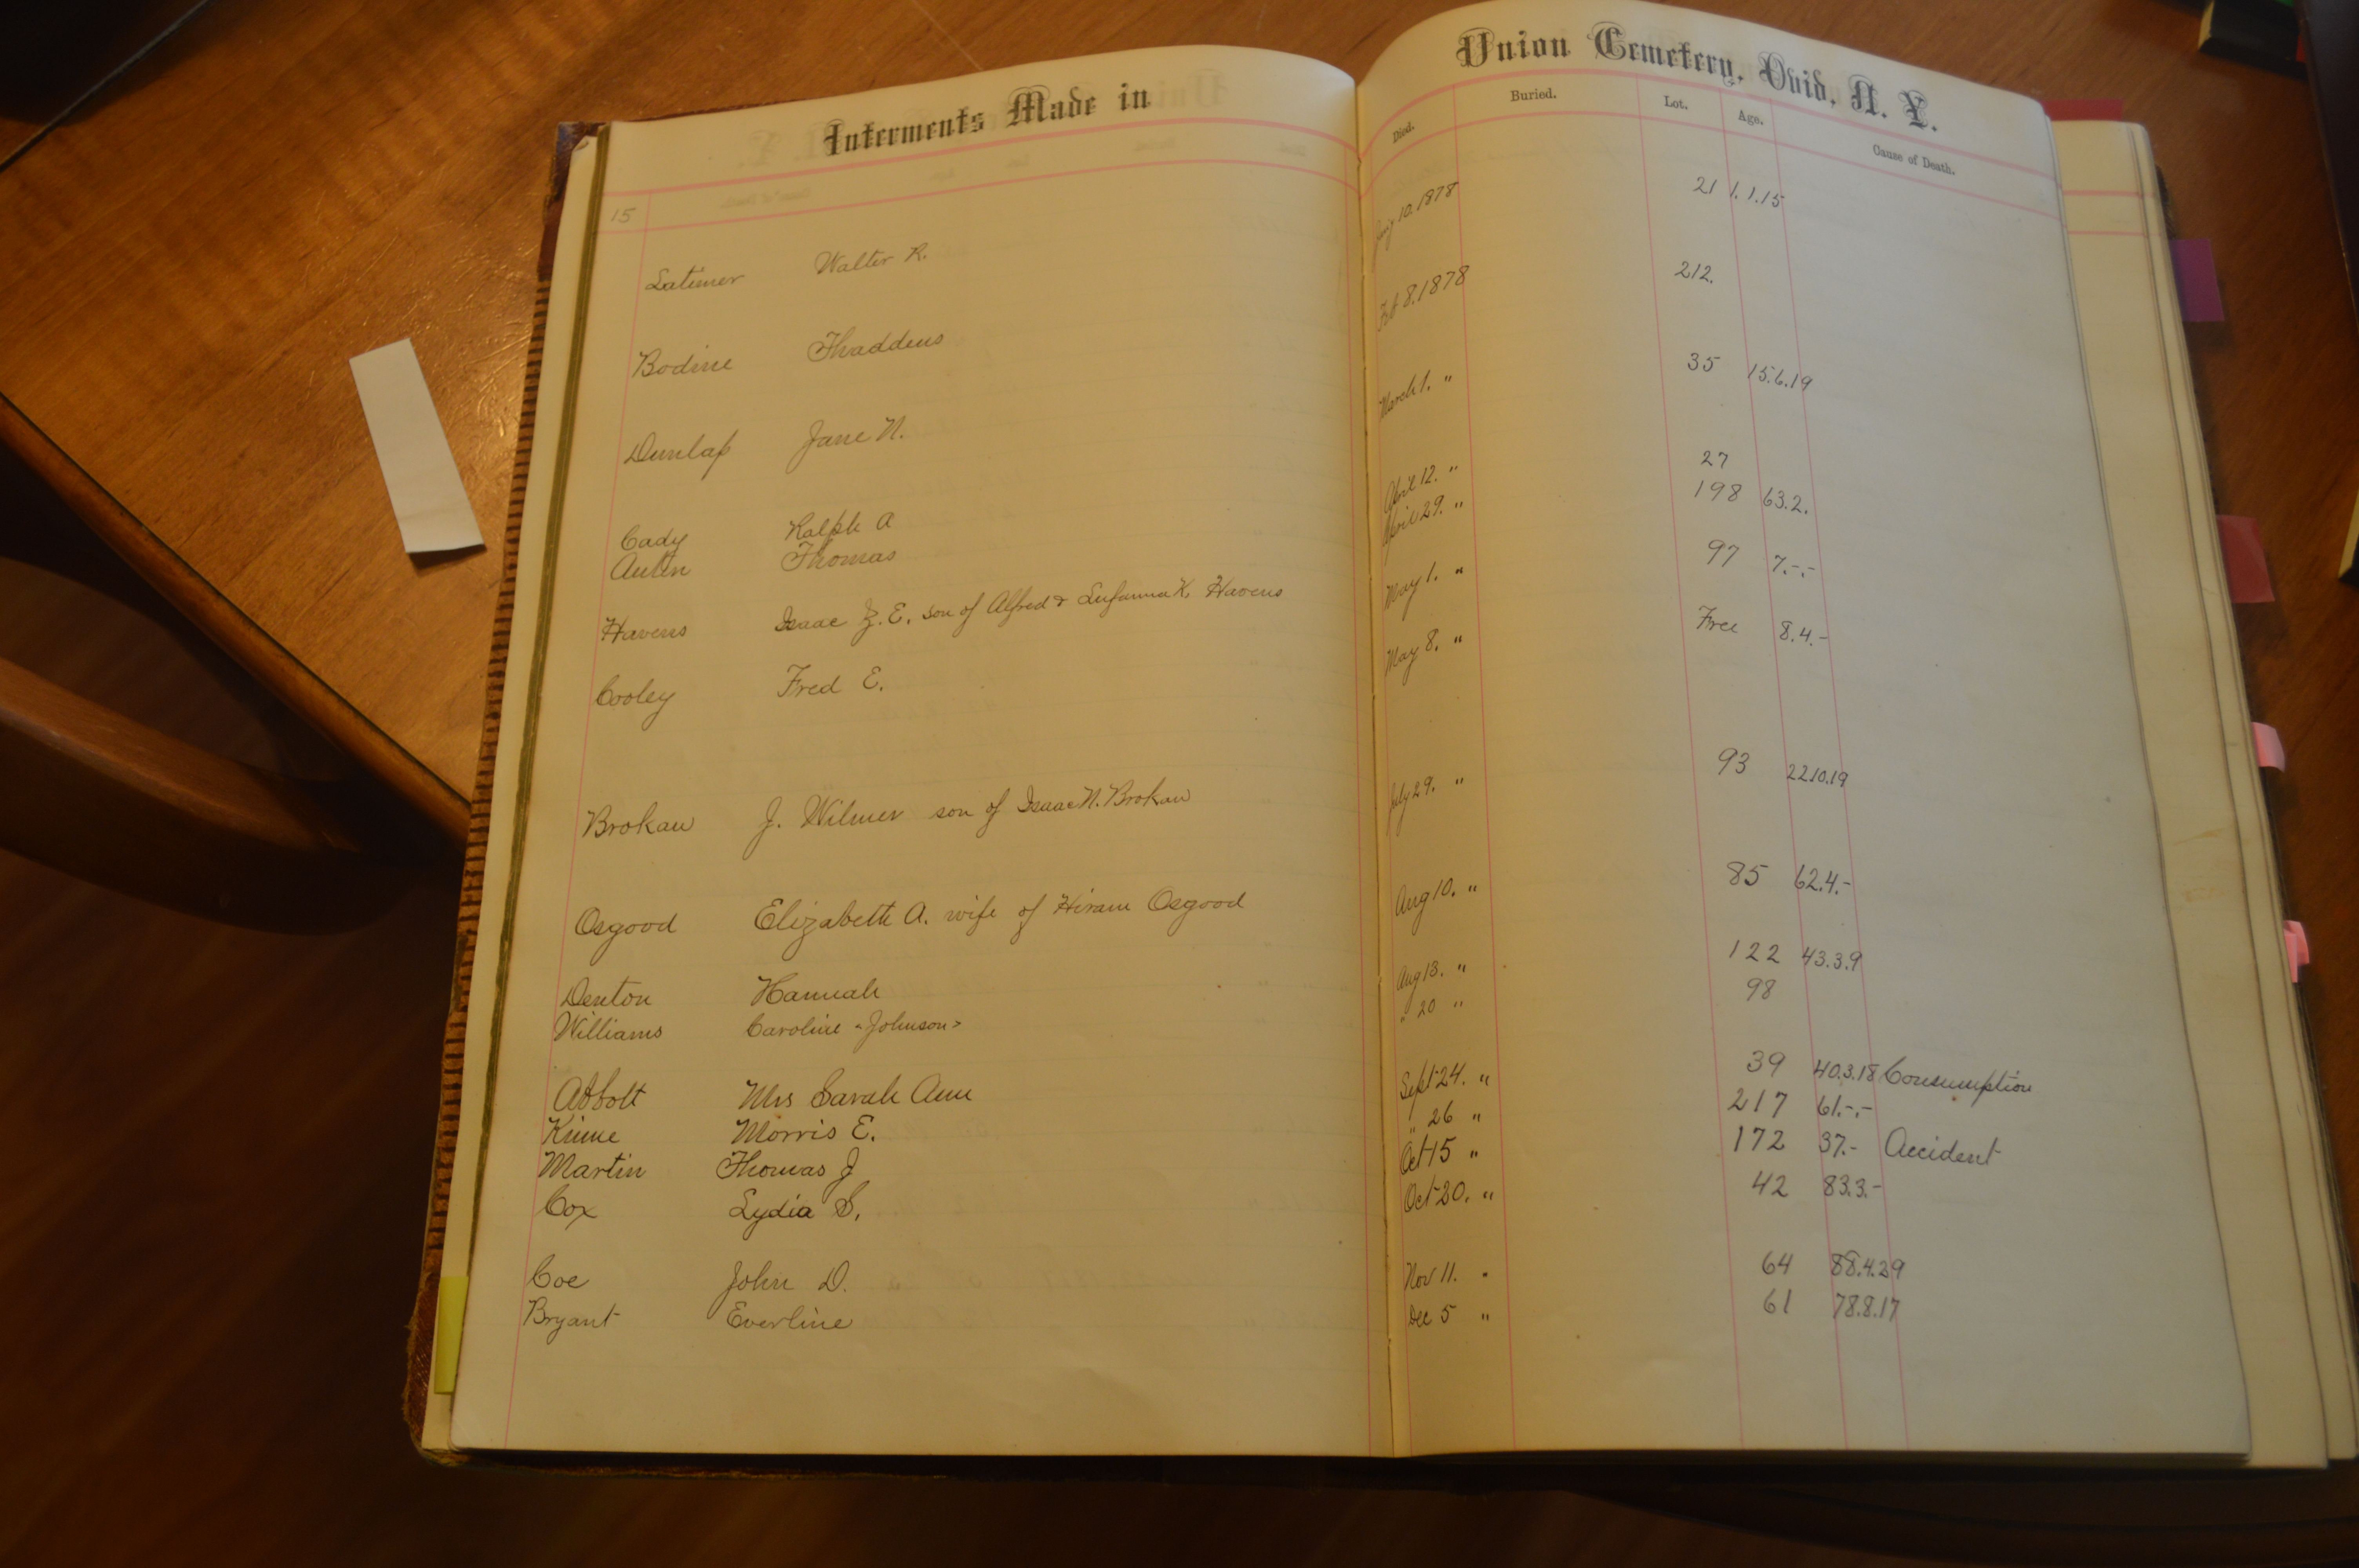 Interments Made in Union Cemetery, Ovid, N. Y.
15 Died. Buried. Lot. Age. Cause of Death.
Latimer Walter R. 10. 1878 21 1.1.15
Bodine Thaddeus Feb 8. 1878 212.
Dunlap Jane N. March 1. " 35 15.6.19
Cady Ralph A April 12. " 27
Thomas April 29. " 198 63.2.
Havens Isaac Z. E. son of Alfred & K. Havens May 1. " 97 7.-.-
Cooley Fred E. May 8. " Free 8.4.-
Brokaw J. Wilmer son of Isaac N. Brokaw July 29. " 93 22.10.19
Osgood Elizabeth A. wife of Hiram Osgood Aug 10. " 85 62.4.-
Denton Hannah Aug 13. " 122 43.3.9
Williams Caroline "Johnson" " 20 " 98
Abbott Mrs Sarah Ann Sept 24. " 39 40.3.18 Consumption
Kinne Morris E. " 26 " 217 61.-.-
Martin Thomas J Oct 15 " 172 37.- Accident
Cox Lydia S. Oct 20. " 42 83.3.-
Coe John D. Nov 11. " 64 88.4.29
Bryant Everline Dec 5 " 61 78.8.17